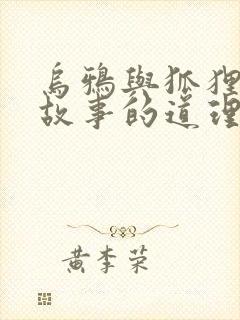 烏鴉與狐狸
故事的道理
黃李荣